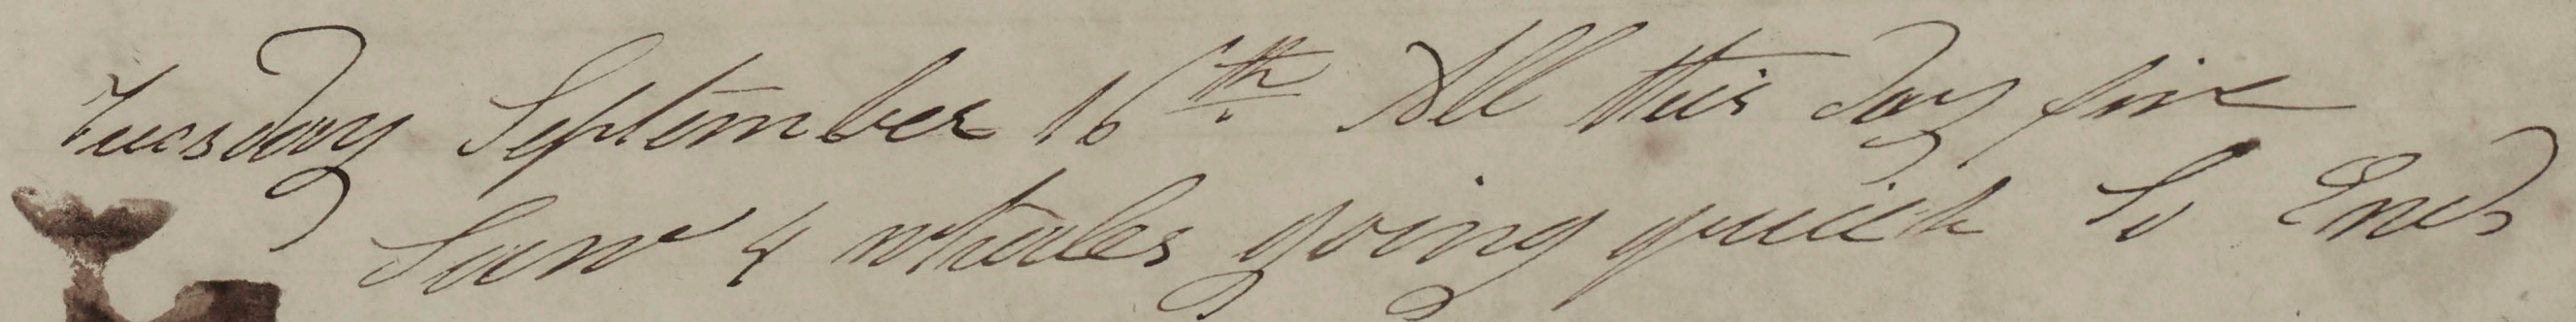 Tuesday September 16th All this Day fine
Saw 4 whales going quick So Ends